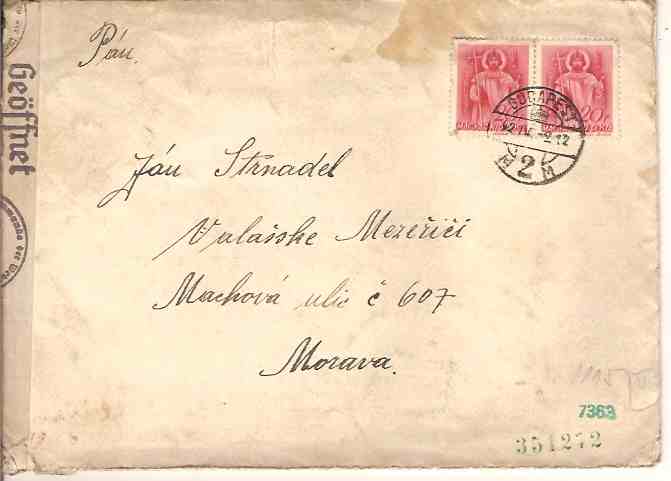 Pán.
Geöffnet
BUDAPEST
20f
2
M M
Ján Strnadel
Valašske Mezeřičí
Machová ulic č 607
Morava.
7363
351272